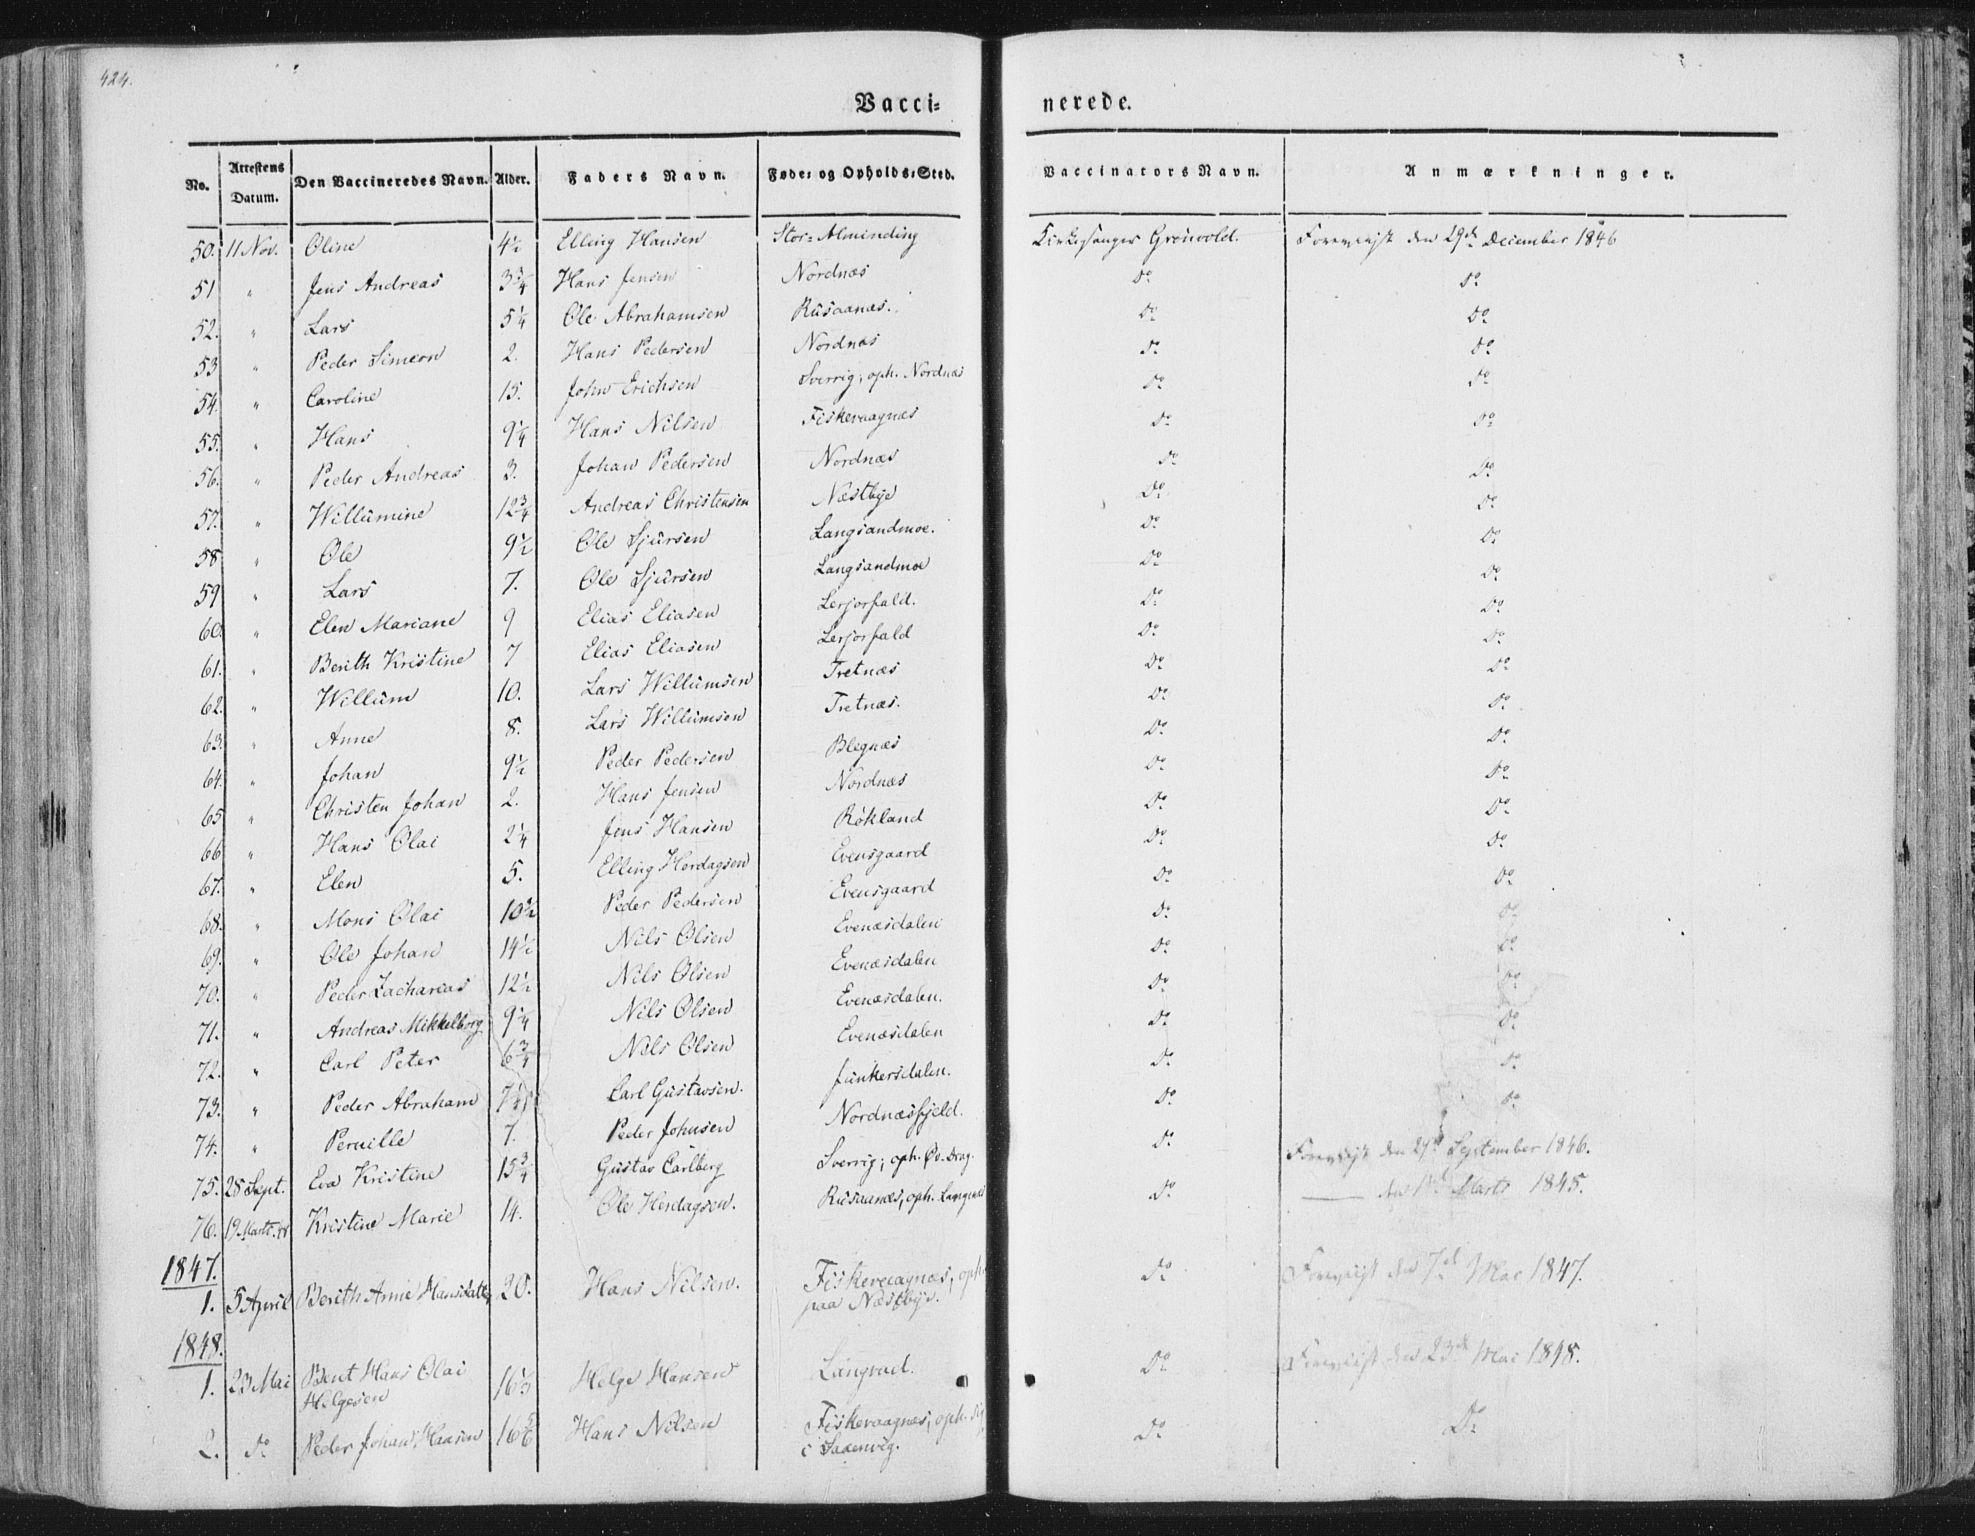 424.
Vacci= nerede.
No. | Attestens Datum. | Den Vaccineredes Navn. | Alder. | Faders Navn. | Føde= og Opholds=Sted. | Vaccinators Navn. | Anmærkninger.
50. 11 Nov. Oline 4½ Elling Hansen Stor=Alminding Kirkesanger Grønvold. Foreviist den 29de December 1846
51 " Jens Andreas 3¾ Hans Jensen Nordnæs Do Do
52. " Lars 5¼ Ole Abrahamsen Rusaanæs. Do Do
53 " Peder Simeon 2. Hans Pedersen Nordnæs Do Do
54. " Caroline 15. John Erichsen Sverrig, oph. Nordnæs Do Do
55. " Hans 9¼ Hans Nilsen Fiskevaagnæs Do Do
56. " Peder Andreas 3. Johan Pedersen Nordnæs Do Do
57. " Willumine 12¾ Andreas Christensen Næstbye Do Do
58 " Ole 9½ Ole Sjursen Langsandmoe. Do Do
59 " Lars 7. Ole Sjursen Langsandmoe Do Do
60. " Elen Mariane 9 Elias Eliasen Lerjorfald. Do Do
61. " Berith Kristine 7 Elias Eliasen Lerjorfald Do Do
62. " Willum 10. Lars Willumsen Tretnæs Do Do
63. " Anne 8. Lars Willumsen Tretnæs. Do Do
64. " Johan 9½ Peder Pedersen Blegnæs Do Do
65 " Christen Johan 2. Hans Jensen Nordnæs Do Do
66 " Hans Olai 2¼ Jens Hansen Røkland Do Do
67. " Elen 5. Elling Herdagsen Evensgaard Do Do
68. " Mons Olai 10½ Peder Pedersen Evensgaard Do Do
69. " Ole Johan 14½ Nils Olsen Evenæsdalen Do Do
70. " Peder Zacharias 12½ Nils Olsen Evenæsdalen Do Do
71. " Andreas Mikkelborg 9¼ Nils Olsen Evenæsdalen. Do Do
72. " Carl Peter 6¾ Nils Olsen Evenæsdalen Do Do
73. " Peder Abraham 7½ Carl Gustavsen. Junkersdalen. Do Do
74. " Pernille 7. Peder Johnsen Nordnæsfjeld. Do Do
75. 28 Sept. Eva Kristine 15¾ Gustav Carlberg Sverrig; oph. Øv. Drag. Do Foreviist den 27de September 1846.
76. 19 Marts Kristine Marie 14. Ole Herdagsen. Rusaanæs, oph. Langnæs Do — den Marts 1845.
1847.
1. 5 April Berith Anne Hansdatter 20. Hans Nilsen. Fiskevaagnæs, oph.
paa Næstbye. Do Foreviist den 7de Mai 1847.
1848.
1. 23 Mai Bent Hans Olai 16½ Helge Hansen Langvad. Do Foreviist den 23de Mai 1848.
Helgesen
2. Do Peder Johan Hansen 16 Hans Nilsen Fiskevaagnæs, oph. sig
i Saxenvig. Do Do